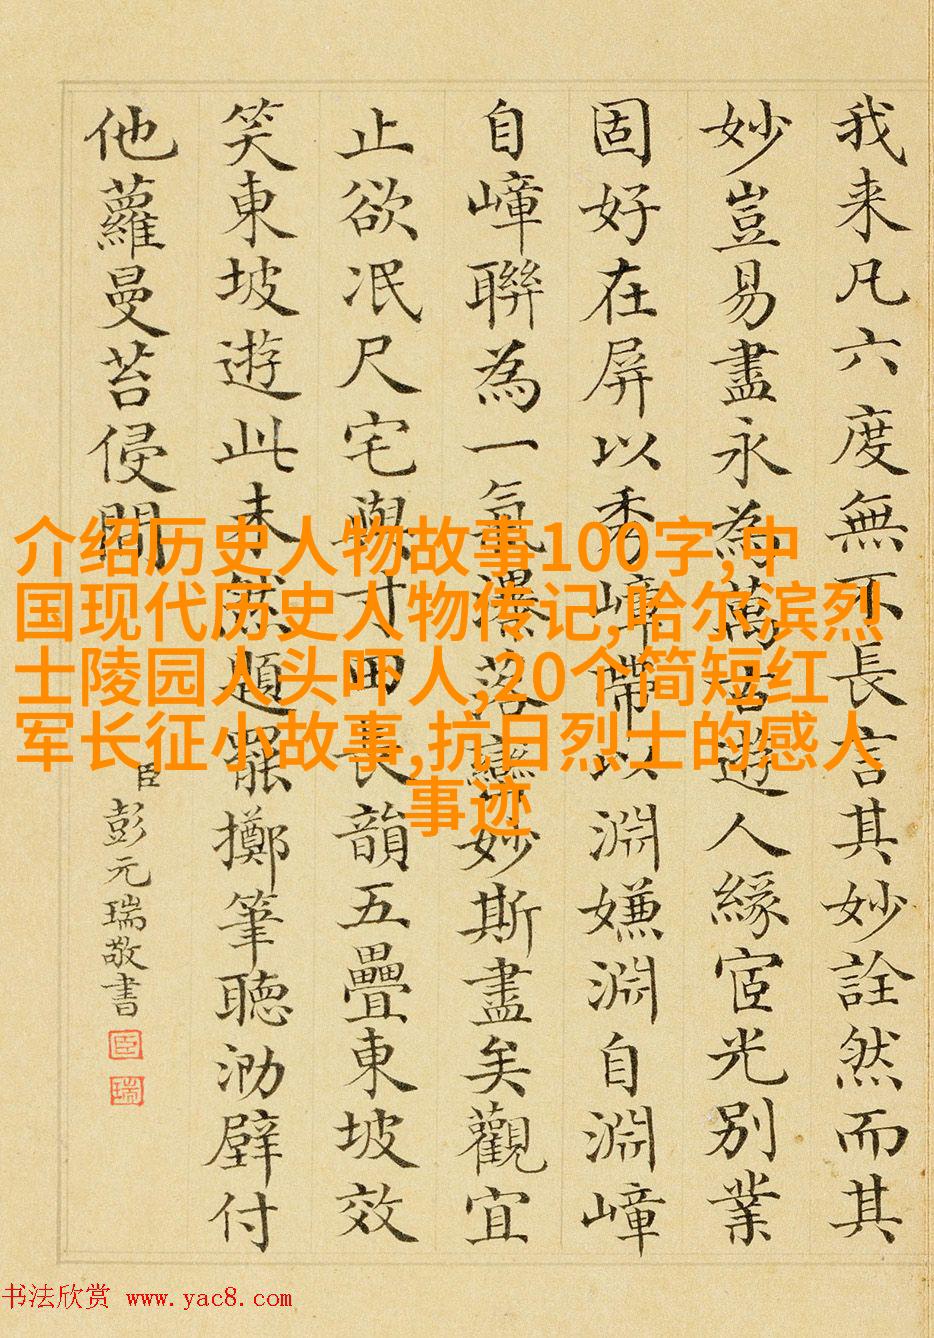 我来凡六度無不長言其妙詮然而其
妙豈易盡永為萬古遊人緣宧光別業
固好在屏以秀嶂帶以淵嫌淵自淵嶂
自嶂聯為一氣落妙斯盡矣觀宜
止欲泯尺宅與寸田長韻五疊東坡效
笑東坡遊此未然題罷擲筆聽泐壁付
他蘿曼苔侵閒
臣彭元瑞敬書
臣
瑞
介绍历史人物故事100字,中
国现代历史人物传记,哈尔滨烈
士陵园人头吓人,20个简短红
军长征小故事,抗日烈士的感人
事迹
书法欣赏 www.yac8.com